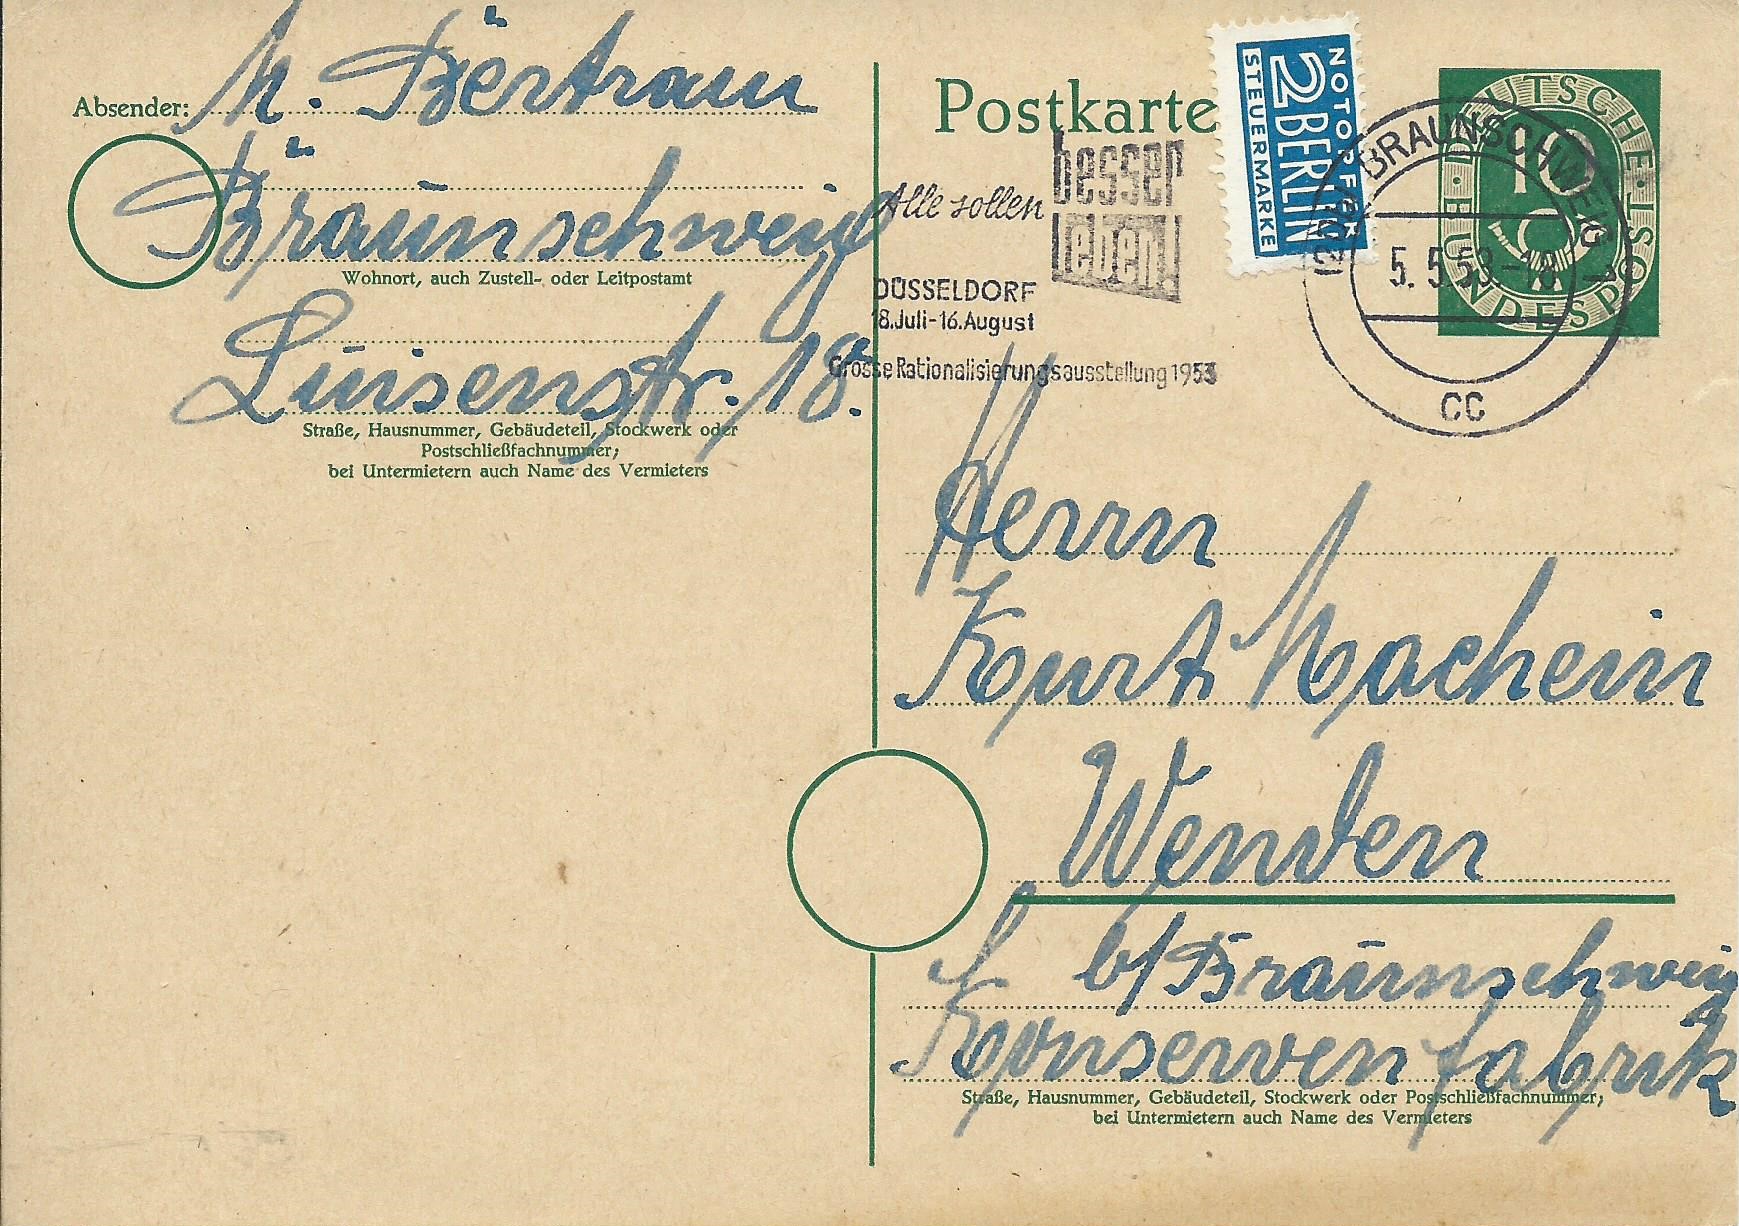 Absender: M. Bertram
Braunschweig
Wohnort, auch Zustell- oder Leitpostamt
Luisenstr. 18.
Straße, Hausnummer, Gebäudeteil, Stockwerk oder
Postschließfachnummer;
bei Untermietern auch Name des Vermieters
Postkarte
NOTOPFER
2 BERLIN
STEUERMARKE
DEUTSCHE BUNDESPOST
10
BRAUNSCHWEIG
5.5.53.-18
CC
Alle sollen
besser
leben!
DÜSSELDORF
18.Juli-16.August
Grosse Rationalisierungsausstellung 1953
Herrn
Kurt Machein
Wenden
b/Braunschweig
Konservenfabrik
Straße, Hausnummer, Gebäudeteil, Stockwerk oder Postschließfachnummer;
bei Untermietern auch Name des Vermieters